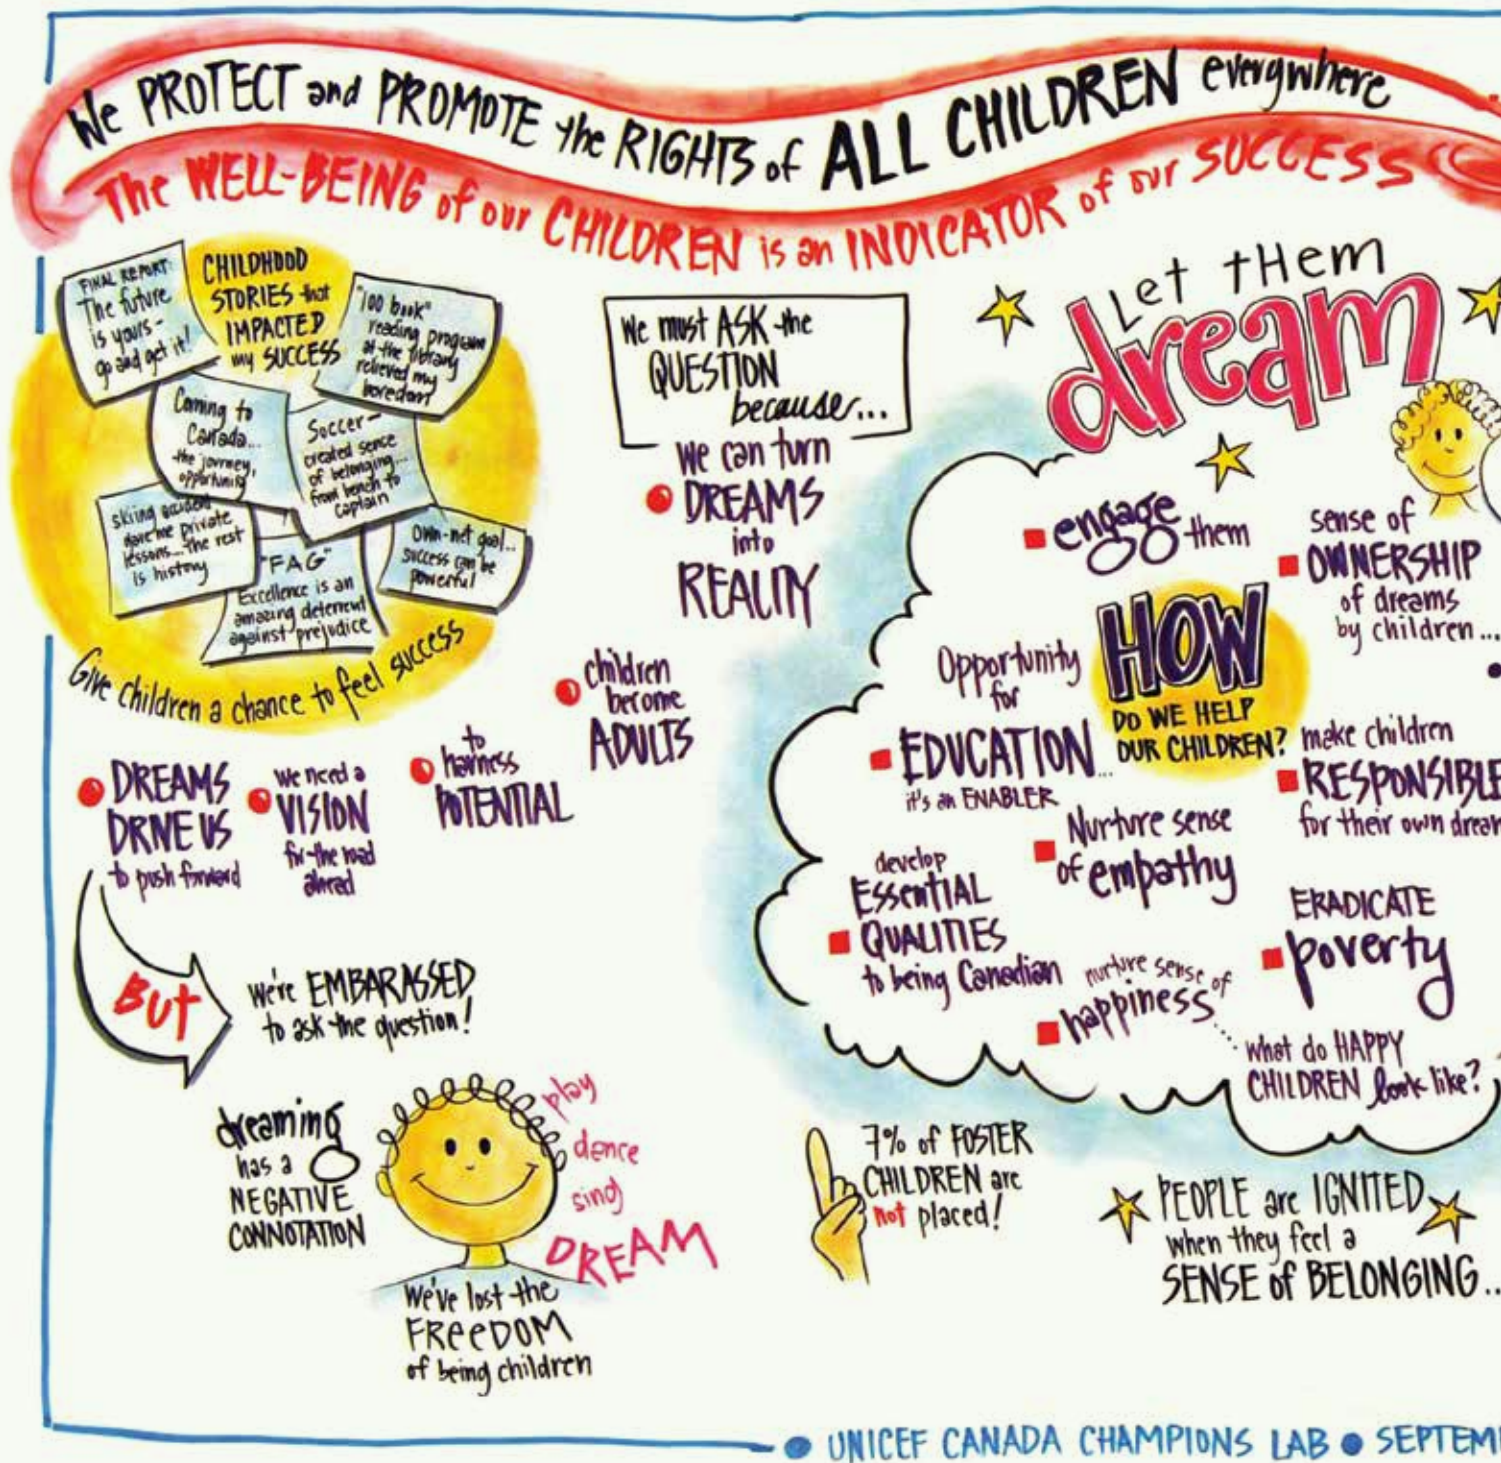 We PROTECT and PROMOTE the RIGHTS of ALL CHILDREN everywhere
The WELL-BEING of our CHILDREN is an INDICATOR of our SUCCESS
FINAL REPORT:
The future
is yours -
go and get it!
CHILDHOOD
STORIES that
IMPACTED
my SUCCESS
"100 book"
reading program
at the library
relieved my
boredom
Coming to
Canada...
the journey,
opportunity
Soccer -
created sense
of belonging...
from bench to
captain
skiing accident
gave me private
lessons... the rest
is history
"FAG"
Excellence is an
amazing deterrent
against prejudice
Own-net goal...
success can be
powerful
Give children a chance to feel success
We must ASK the
QUESTION
because...
We can turn
DREAMS
into
REALITY
children
become
ADULTS
to
harness
POTENTIAL
we need a
VISION
for the road
ahead
DREAMS
DRIVE US
to push forward
BUT
We're EMBARASSED
to ask the question!
dreaming
has a
NEGATIVE
CONNOTATION
play
dance
sing
DREAM
We've lost the
FREEDOM
of being children
Let tHem
dream
engage them
sense of
OWNERSHIP
of dreams
by children...
HOW
DO WE HELP
OUR CHILDREN?
Opportunity
for
EDUCATION...
it's an ENABLER
make children
RESPONSIBLE
for their own dream
Nurture sense
of empathy
develop
ESSENTIAL
QUALITIES
to being Canadian
ERADICATE
poverty
nurture sense of
happiness...
what do HAPPY
CHILDREN look like?
7% of FOSTER
CHILDREN are
not placed!
PEOPLE are IGNITED
when they feel a
SENSE of BELONGING...
UNICEF CANADA CHAMPIONS LAB • SEPTEM